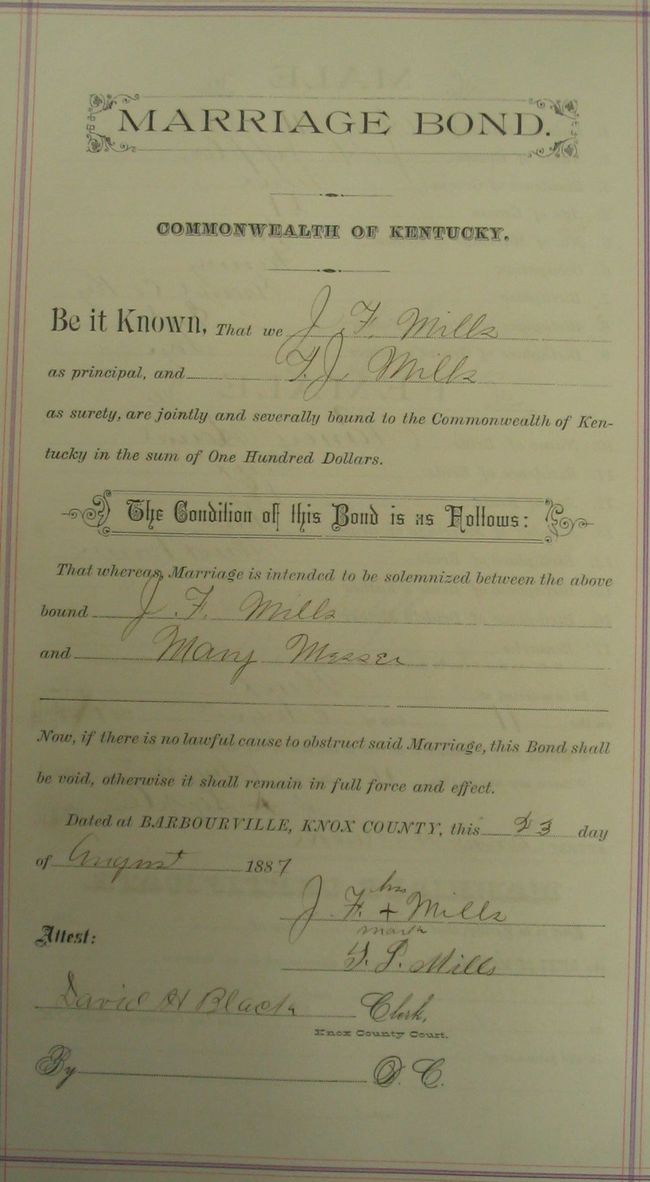 MARRIAGE BOND.
COMMONWEALTH OF KENTUCKY.
Be it Known, That we J. F. Mills
as principal, and F. J. Mills
as surety, are jointly and severally bound to the Commonwealth of Ken-
tucky in the sum of One Hundred Dollars.
The Condition of this Bond is as Follows:
That whereas, Marriage is intended to be solemnized between the above
bound J. F. Mills
and Mary Messer
Now, if there is no lawful cause to obstruct said Marriage, this Bond shall
be void, otherwise it shall remain in full force and effect.
Dated at BARBOURVILLE, KNOX COUNTY, this 23 day
of August 1887
his
J. F. + Mills
mark
Attest:
Mills
David H Black Clerk,
Knox County Court.
By D. C.